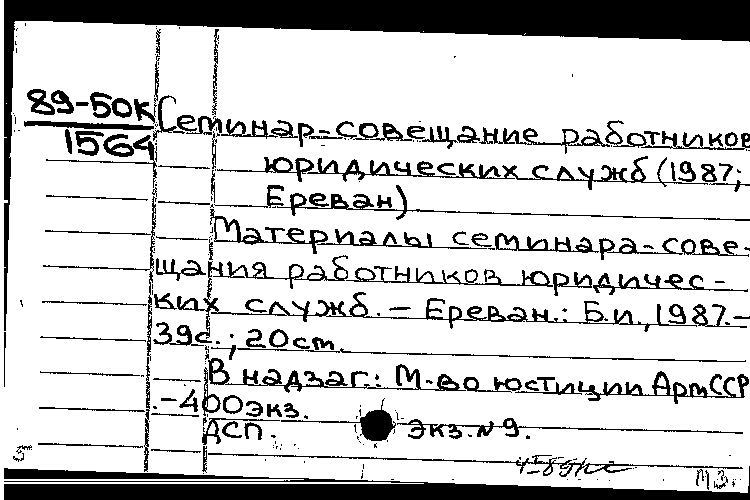 89-50К
1564
Семинар-совещание работников
юридических служб (1987;
Ереван)
Материалы семинара-сове-
щания работников юридичес-
ких служб. – Ереван.: Б.и., 1987.–
39с.; 20cm.
В надзаг.: М-во юстиции АрмССР
.–400экз.
ДСП.
экз. N 9.
5
МЗ.